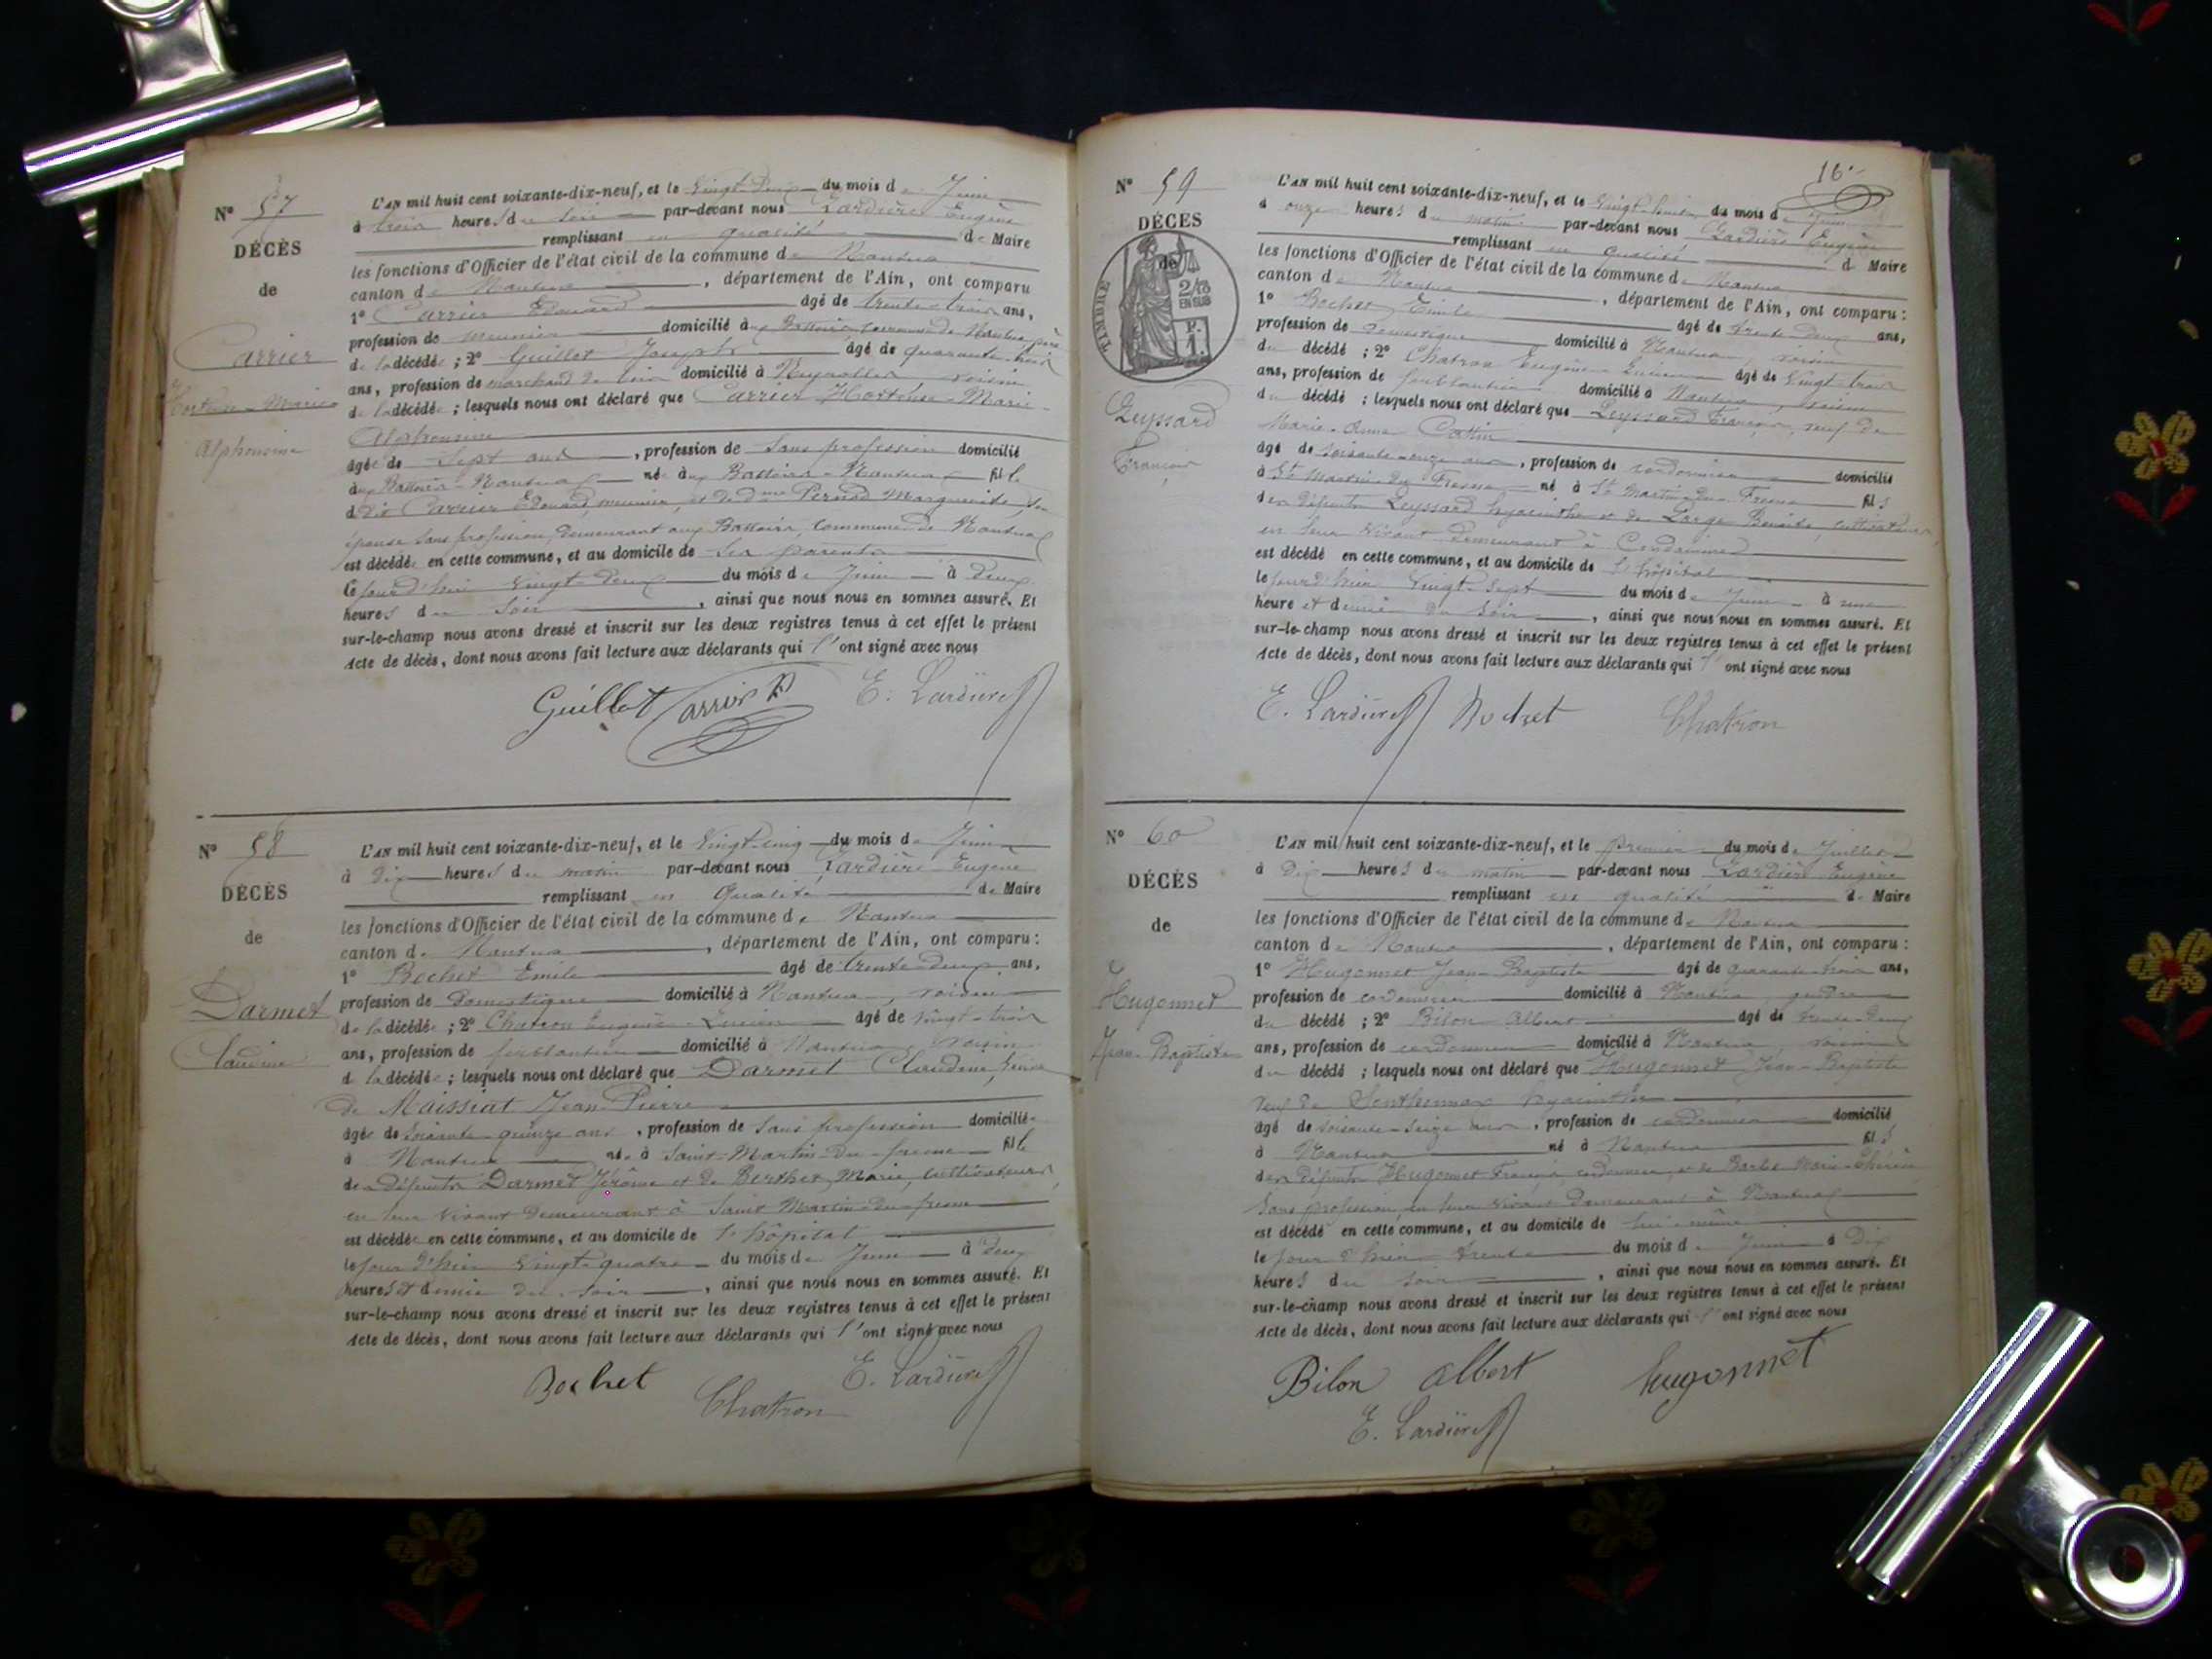 N° 57
DÉCÈS
de
Carrier
Hortense-Marie
Alphonsine
L'AN mil huit cent soixante-dix-neuf, et le Vingt-Deux du mois de Juin
à trois heures du soir par-devant nous Lardière Eugène
remplissant en qualité de Maire
les fonctions d'Officier de l'état civil de la commune de Nantua
canton de Nantua, département de l'Ain, ont comparu
1° Carrier Edouard âgé de trente-trois ans,
profession de meunier domicilié aux Battoirs commune de Nantua père
de la décédée ; 2° Guillot Joseph âgé de quarante-trois
ans, profession de marchand de bois domicilié à Neyrolles voisin
de la décédée ; lesquels nous ont déclaré que Carrier Hortense-Marie-
Alphonsine
âgée de Sept ans, profession de Sans profession domicilié
aux Battoirs-Nantua née aux Battoirs-Nantua fille
de Carrier Edouard, meunier, et de dme Pernod Marguerite, son
épouse sans profession, demeurant aux Battoirs, commune de Nantua
est décédée en cette commune, et au domicile de ses parents
ce jourd'hui vingt-deux du mois de Juin à deux
heures du soir, ainsi que nous nous en sommes assuré. Et
sur-le-champ nous avons dressé et inscrit sur les deux registres tenus à cet effet le présent
Acte de décès, dont nous avons fait lecture aux déclarants qui l'ont signé avec nous
Guillot Carrier E. Lardière
N° 58
DÉCÈS
de
Darmet
Claudine
L'AN mil huit cent soixante-dix-neuf, et le Vingt-cinq du mois de Juin
à Dix heures du matin par-devant nous Lardière Eugène
remplissant en qualité de Maire
les fonctions d'Officier de l'état civil de la commune de Nantua
canton de Nantua, département de l'Ain, ont comparu :
1° Bochet Emile âgé de trente-deux ans,
profession de Domestique domicilié à Nantua, voisin
de la décédée ; 2° Chatron Eugène-Lucien âgé de vingt-trois
ans, profession de ferblantier domicilié à Nantua, voisin
de la décédée ; lesquels nous ont déclaré que Darmet Claudine, veuve
de Maissiat Jean-Pierre
âgée de soixante-quinze ans, profession de Sans profession domiciliée
à Nantua née à Saint-Martin-du-fresne fille
des défunts Darmet Jérôme et de Berthet Marie, cultivateurs
en leur vivant demeurant à Saint-Martin-du-fresne
est décédée en cette commune, et au domicile de l'hôpital
le jour d'hier vingt-quatre du mois de Juin à deux
heures et demie du soir, ainsi que nous nous en sommes assuré. Et
sur-le-champ nous avons dressé et inscrit sur les deux registres tenus à cet effet le présent
Acte de décès, dont nous avons fait lecture aux déclarants qui l'ont signé avec nous
Bochet Chatron E. Lardière
16
N° 59
DÉCÈS
de
TIMBRE
Leyssard
François
L'AN mil huit cent soixante-dix-neuf, et le Vingt-huit du mois de Juin
à onze heures du matin par-devant nous Lardière Eugène
remplissant en qualité de Maire
les fonctions d'Officier de l'état civil de la commune de Nantua
canton de Nantua, département de l'Ain, ont comparu :
1° Bochet Emile âgé de trente-deux ans,
profession de Domestique domicilié à Nantua, voisin
du décédé ; 2° Chatron Eugène-Lucien âgé de Vingt-trois
ans, profession de ferblantier domicilié à Nantua, voisin
du décédé ; lesquels nous ont déclaré que Leyssard François, veuf de
Marie-Anne Cottin
âgé de soixante-onze ans, profession de cordonnier domicilié
à St Martin-du-Fresne né à St Martin-du-Fresne fils
des défunts Leyssard hyacinthe et de Benoite, cultivateurs,
en leur vivant demeurant à Condamine
est décédé en cette commune, et au domicile de l'hôpital
le jour d'hier Vingt-Sept du mois de Juin à une
heure et demie du soir, ainsi que nous nous en sommes assuré. Et
sur-le-champ nous avons dressé et inscrit sur les deux registres tenus à cet effet le présent
Acte de décès, dont nous avons fait lecture aux déclarants qui l'ont signé avec nous
E. Lardière Bochet Chatron
N° 60
DÉCÈS
de
Hugonnet
Jean-Baptiste
L'AN mil huit cent soixante-dix-neuf, et le premier du mois de Juillet
à Dix heures du matin par-devant nous Lardière Eugène
remplissant en qualité de Maire
les fonctions d'Officier de l'état civil de la commune de Nantua
canton de Nantua, département de l'Ain, ont comparu :
1° Hugonnet Jean-Baptiste âgé de quarante-trois ans,
profession de cordonnier domicilié à Nantua, gendre
du décédé ; 2° Bilon Albert âgé de trente-deux
ans, profession de cordonnier domicilié à Nantua, voisin
du décédé ; lesquels nous ont déclaré que Hugonnet Jean-Baptiste
veuf de Senthonnax hyacinthe
âgé de soixante-seize ans, profession de cordonnier domicilié
à Nantua né à Nantua fils
des défunts Hugonnet François, cordonnier, et de Barbe Marie-Thérèse
sans profession, en leur vivant demeurant à Nantua
est décédé en cette commune, et au domicile de lui-même
le jour d'hier trente du mois de Juin à Dix
heures du soir, ainsi que nous nous en sommes assuré. Et
sur-le-champ nous avons dressé et inscrit sur les deux registres tenus à cet effet le présent
Acte de décès, dont nous avons fait lecture aux déclarants qui l'ont signé avec nous
Bilon Albert hugonnet
E. Lardière